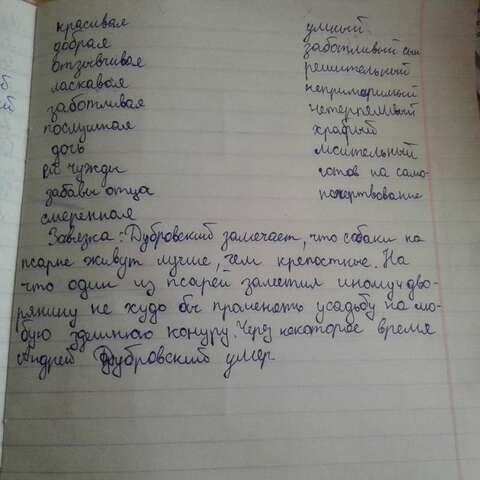 красивая
добрая
отзывчивая
ласковая
заботливая
послушная
дочь
ей чужды
забавы отца
смеренная
умный
заботливый сын
решительный
непримиримый
нетерпеливый
храбрый
мстительный
готов на само-
пожертвование
Завязка: Дубровский замечает, что собаки на
псарне живут лучше, чем крепостные. На
что один из псарей заметил иному и дво-
рянину не худо бы променять усадьбу на лю-
бую здешнюю конуру. Через некоторое время
Андрей Дубровский умер